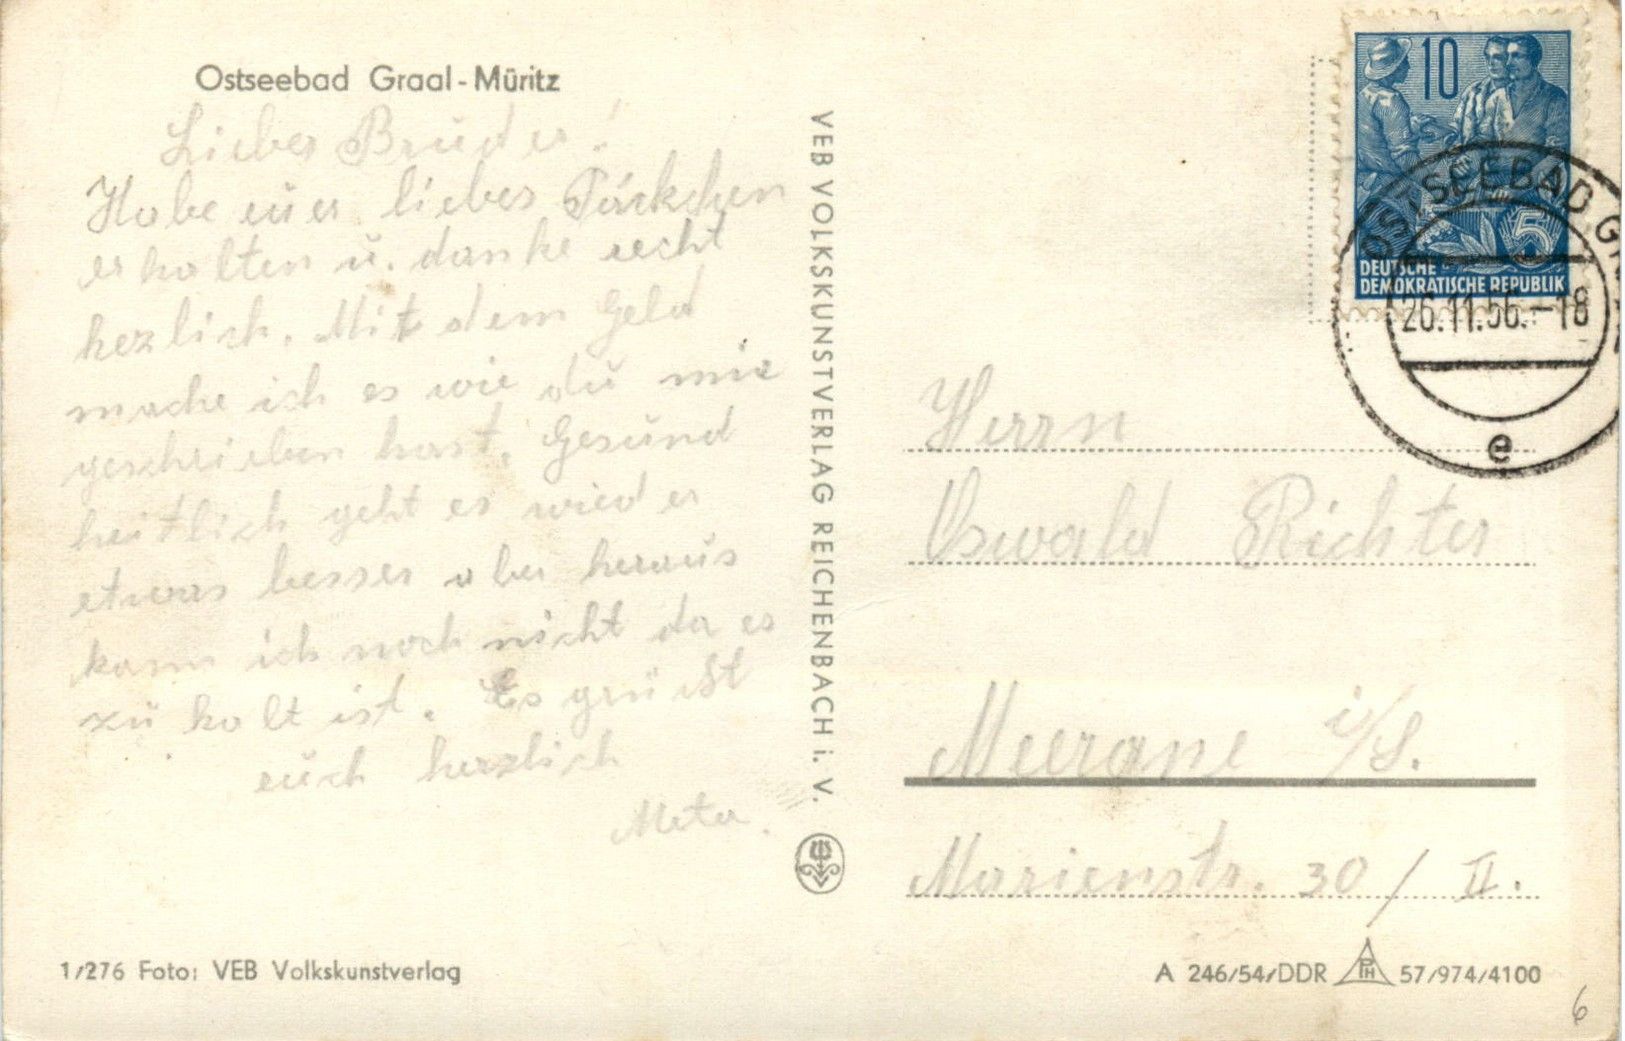 Ostseebad Graal-Müritz
Lieber Bruder!
Habe euer liebes Päckchen
erhalten u. danke recht
hezlich. Mit dem Geld
mache ich es wie du mir
geschrieben hast. Gesund
heitlich geht es wieder
etwas besser aber heraus
kann ich noch nicht da es
zu kalt ist. Es grüßt
euch herzlich
Meta.
1/276 Foto: VEB Volkskunstverlag
VEB VOLKSKUNSTVERLAG REICHENBACH i. V.
10
5
DEUTSCHE
DEMOKRATISCHE REPUBLIK
OSTSEEBAD
26.11.56.-18
e
Herrn
Oswald Richter
Meerane i/S.
Marienstr. 30 / II.
A 246/54/DDR PH 57/974/4100
6